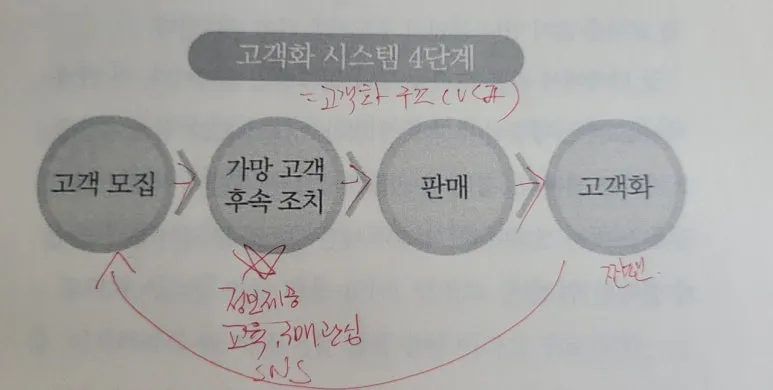 고객화 시스템 4단계
=고객화 루프 (
고객 모집
가망 고객
후속 조치
판매
고객화
찐팬.
정보제공
교육, 구매관심
SNS